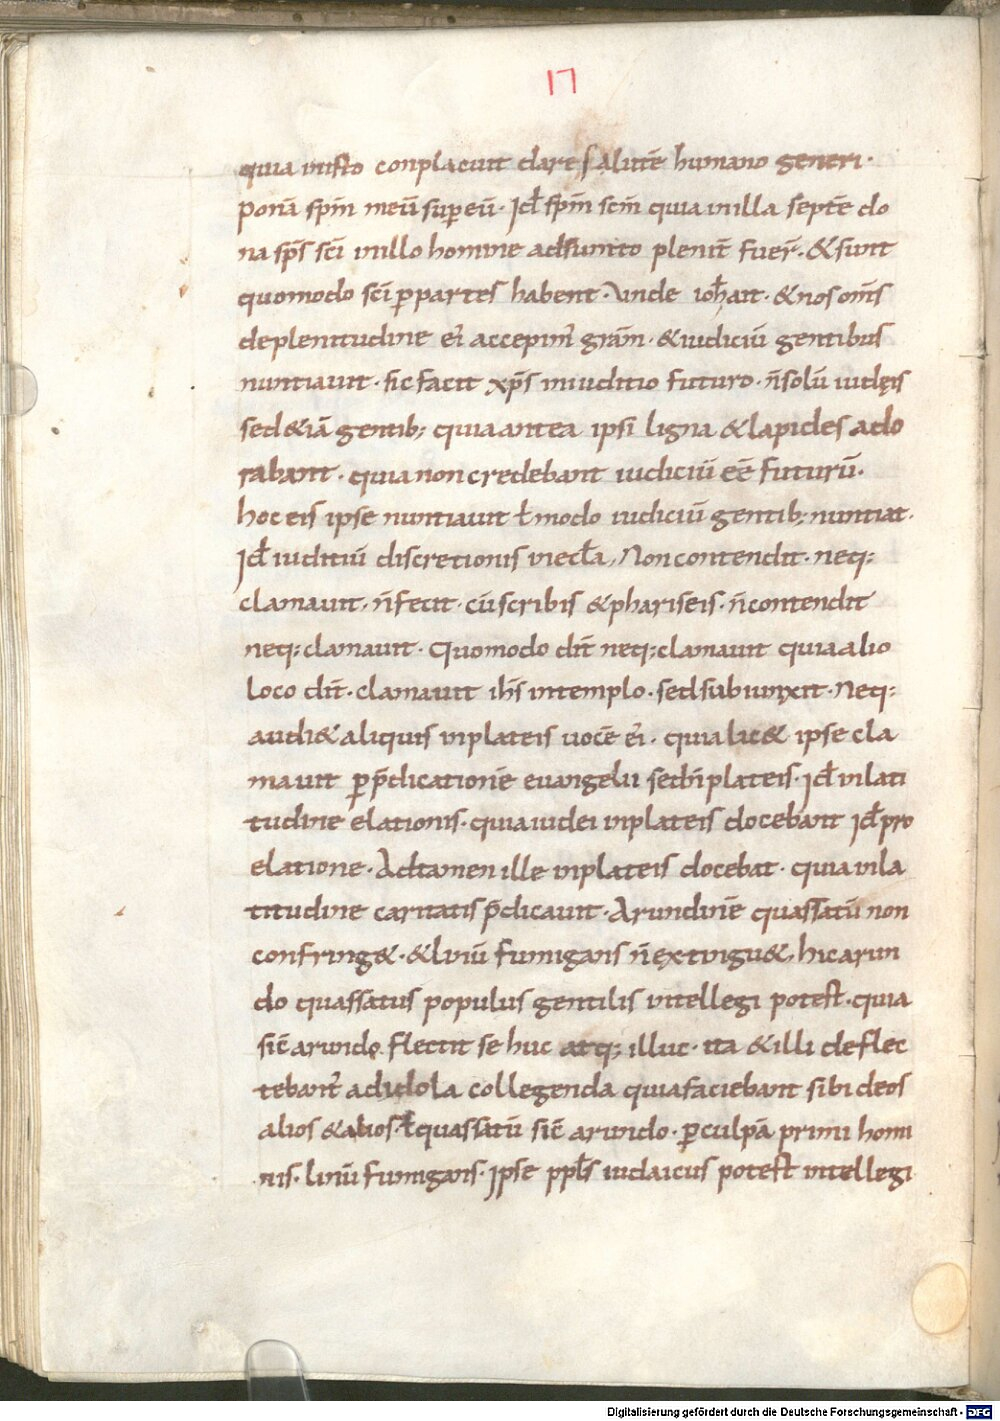 17
quia in isto conplacuit dare salutē humano generi·
ponā sp̄m meū sup eū· Id̄ sp̄m sc̄m quia in illa septē do
na sp̄s sc̄i in illo homine adsumto plenit̄ fuer̄· & sunt
quomodo sc̄i p partes habent· Unde ioh̄ ait· & nos om̄s
de plenitudine ei᾿ accepim᾿ grām· & iudiciū gentibus
nuntiauit· sic facit xp̄s in iuditio futuro· n̄ solū iudęis
sed & iā gentib; quia antea ipsi ligna & lapides ado
rabant· quia non credebant iudiciū eē futurū·
hoc eis ipse nuntiauit ł modo iudiciū gentib; nuntiat·
Id̄ iuditiū discretionis in eccła, Non contendit· neq;
clamauit· n̄ fecit· cū scribis & phariseis· n̄ contendit
neq; clamauit· Quomodo dic̄ neq; clamauit quia alio
loco dic̄· clamauit ih̄s in templo· sed subiunxit· Neq;
audi& aliquis in plateis uocē ei᾿· quia lic& ipse cla
mauit p p̄dicationē euangelii sed n̄ in plateis· Id̄ in lati
tudine elationis· quia iudei in plateis docebant Id̄ pro
elatione· Adtamen ille in plateis docebat· quia in la
titudine caritatis p̄dicauit· Arundinē quassatū non
confring&· & linū fumigans n̄ extingu&, hic arun
do quassatus populus gentilis intellegi potest· quia
sic̄ arundo flectit se huc atq; illuc· ita & illi deflec
tebant᾿ ad idola collegenda quia faciebant sibi deos
alios & alios· ł quassatū sic̄ arundo· p culpā primi homi
nis· linū fumigans· Ipse ppłs iudaicus potest intellegi
Digitalisierung gefördert durch die Deutsche Forschungsgemeinschaft - DFG